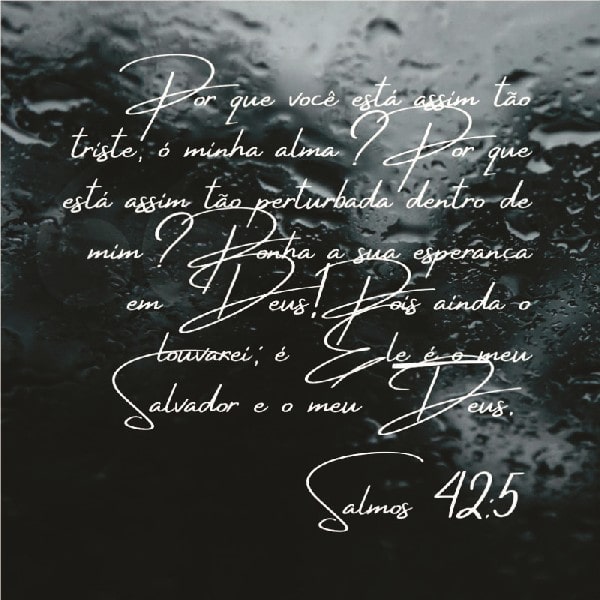 Por que você está assim tão
triste, ó minha alma? Por que
está assim tão perturbada dentro de
mim? Ponha a sua esperança
em Deus! Pois ainda o
louvarei; é Ele é o meu
Salvador e o meu Deus.
Salmos 42:5